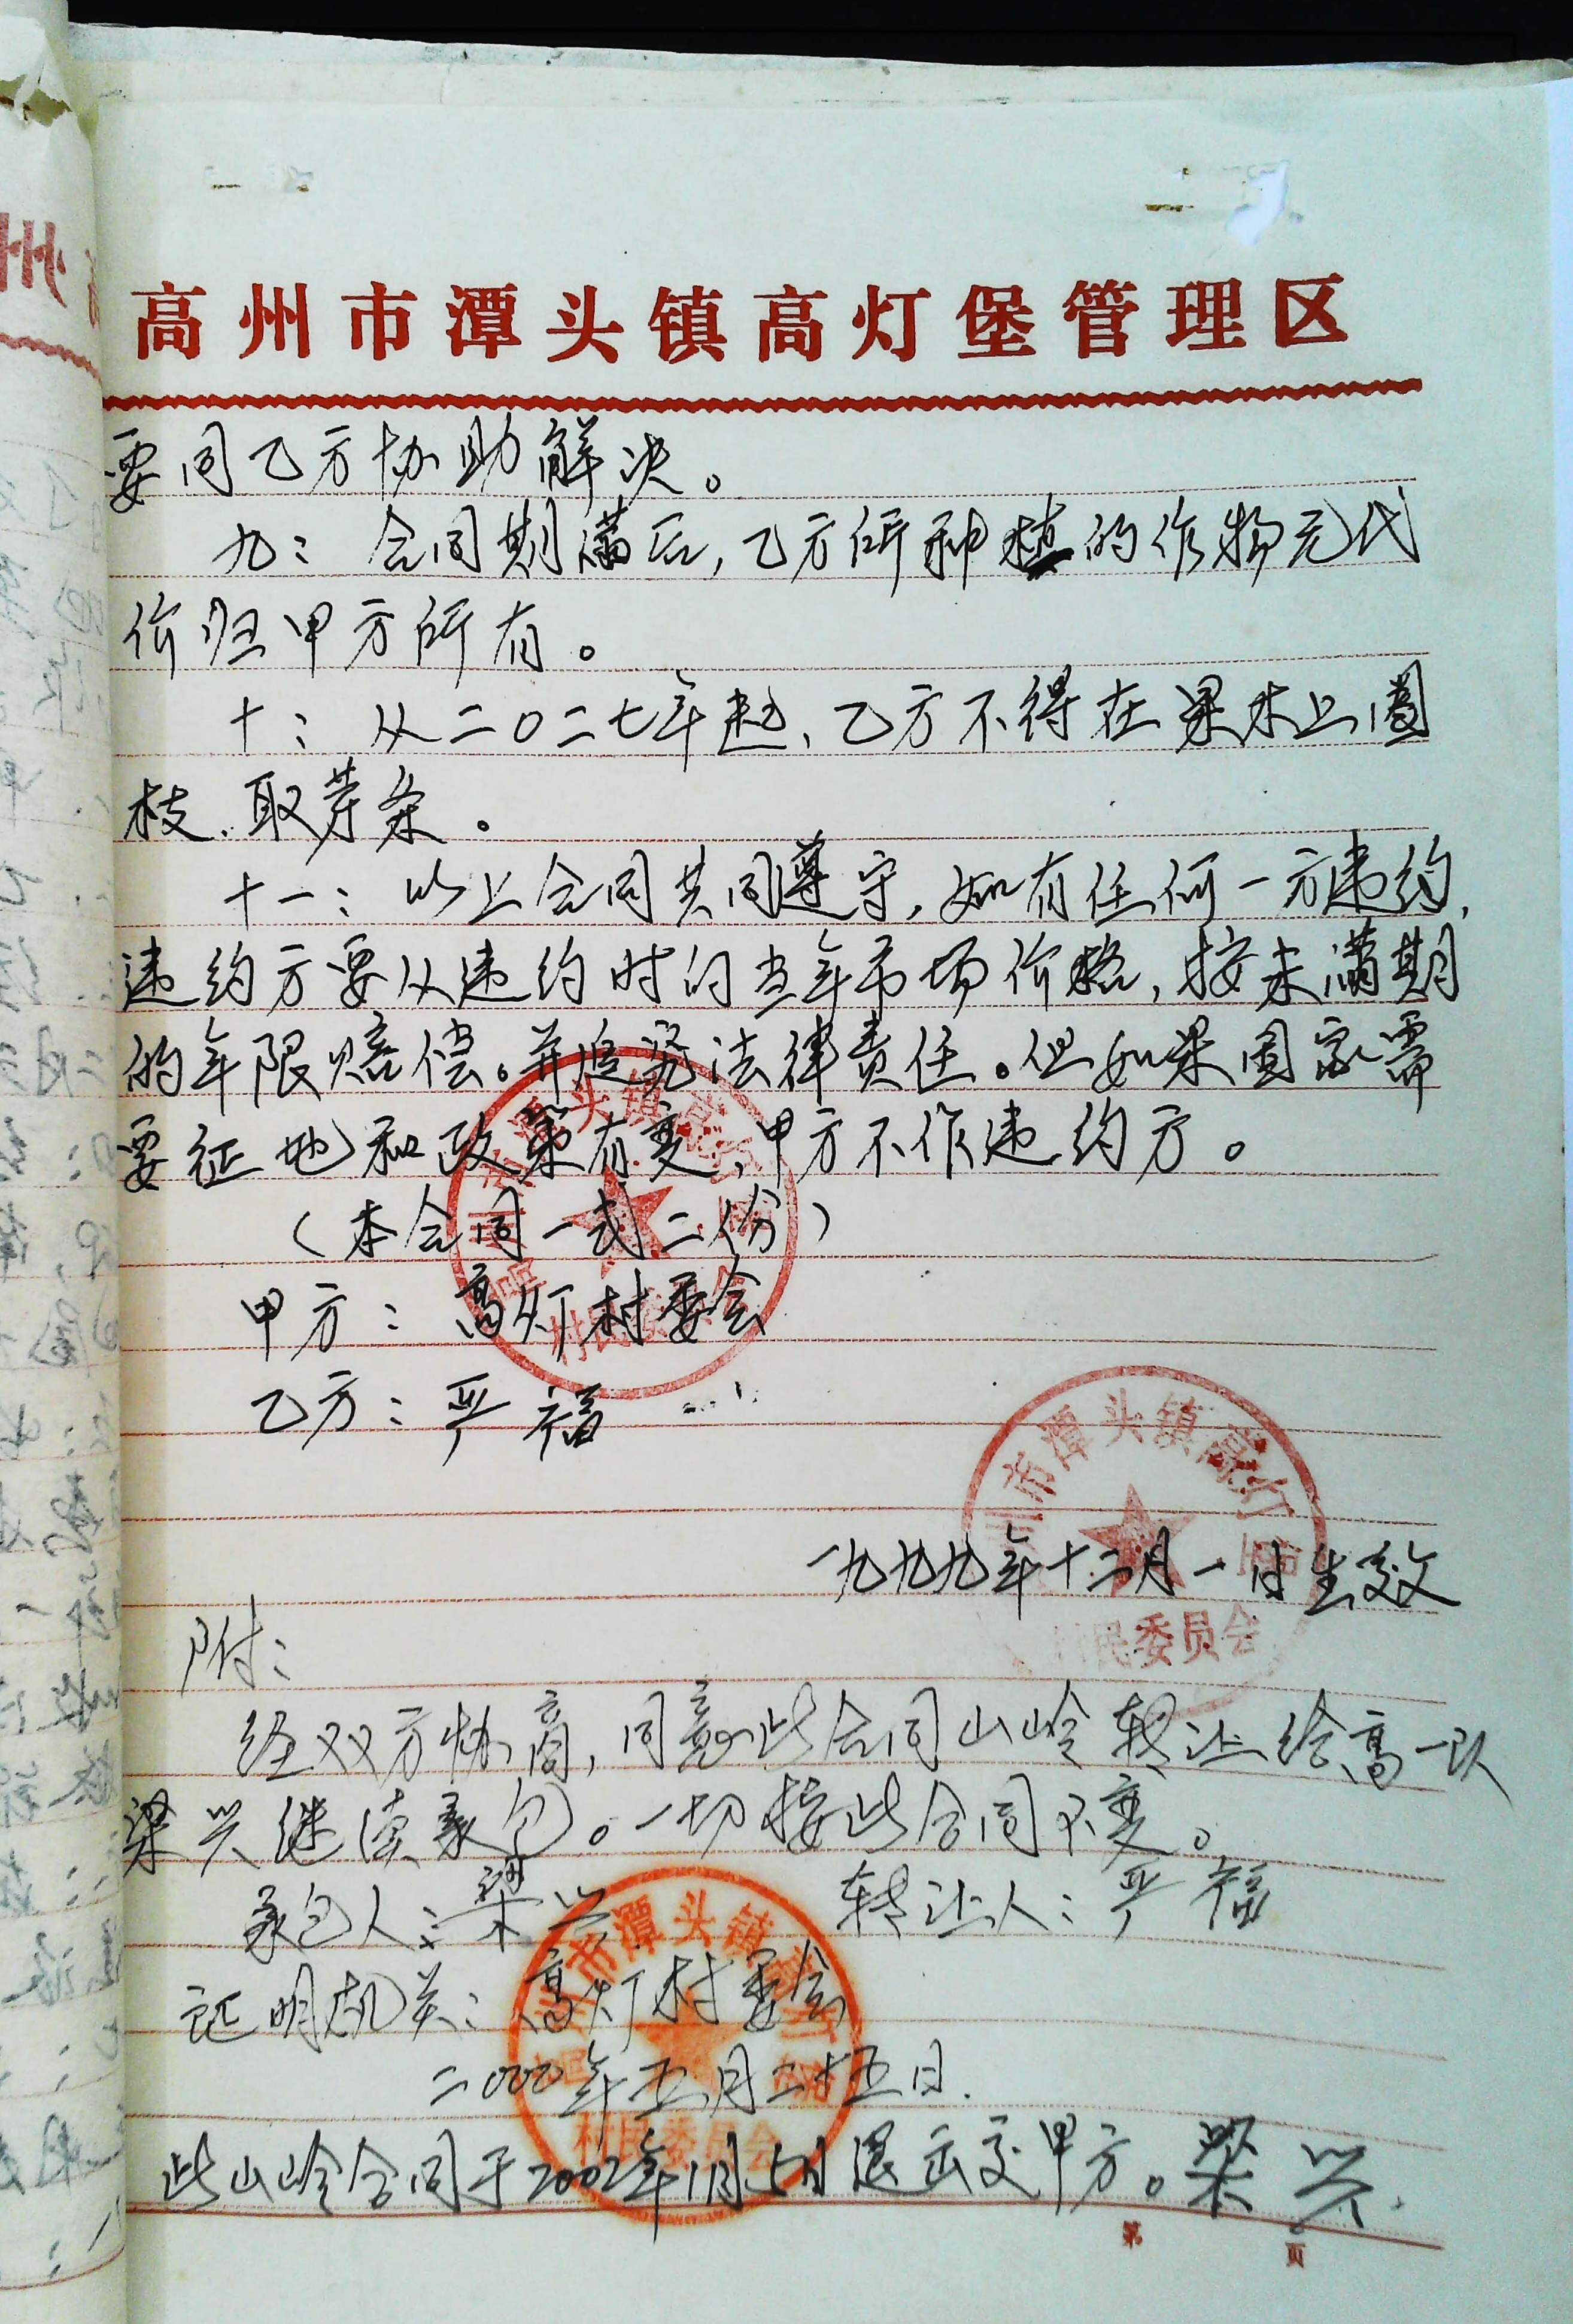 高州市潭头镇高灯堡管理区
要同乙方协助解决。
九：合同期满后,乙方所种植的作物无代
价归甲方所有。
十：从二〇二七年起、乙方不得在果木上圈
枝.取芽条。
十一：以上合同共同遵守,如有任何一方违约,
违约方要从违约时的当年市场价格,按未满期
的年限赔偿。并追究法律责任。但如果国家需
要征地和政策有变、甲方不作违约方。
（本合同一式二份）
甲方：高灯村委会
乙方：严福
市潭头镇高灯
村民委员会
一九九九年十二月一日生效
附：
经双方协商,同意此合同山岭转让给高一队
梁兴继续承包。一切按此合同不变。
承包人：梁兴 转让人：严福
证明机关：高灯村委会
二000年五月二十五日.
此山岭合同于2002年1月5日退出交甲方。梁兴.
第 页